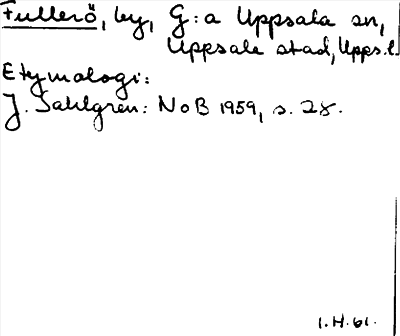 Fullerö, by, G:a Uppsala sn,
Uppsala stad, Upps.l.
Etymologi:
J. Sahlgren: NoB 1959, s. 28.
I.H. 61.